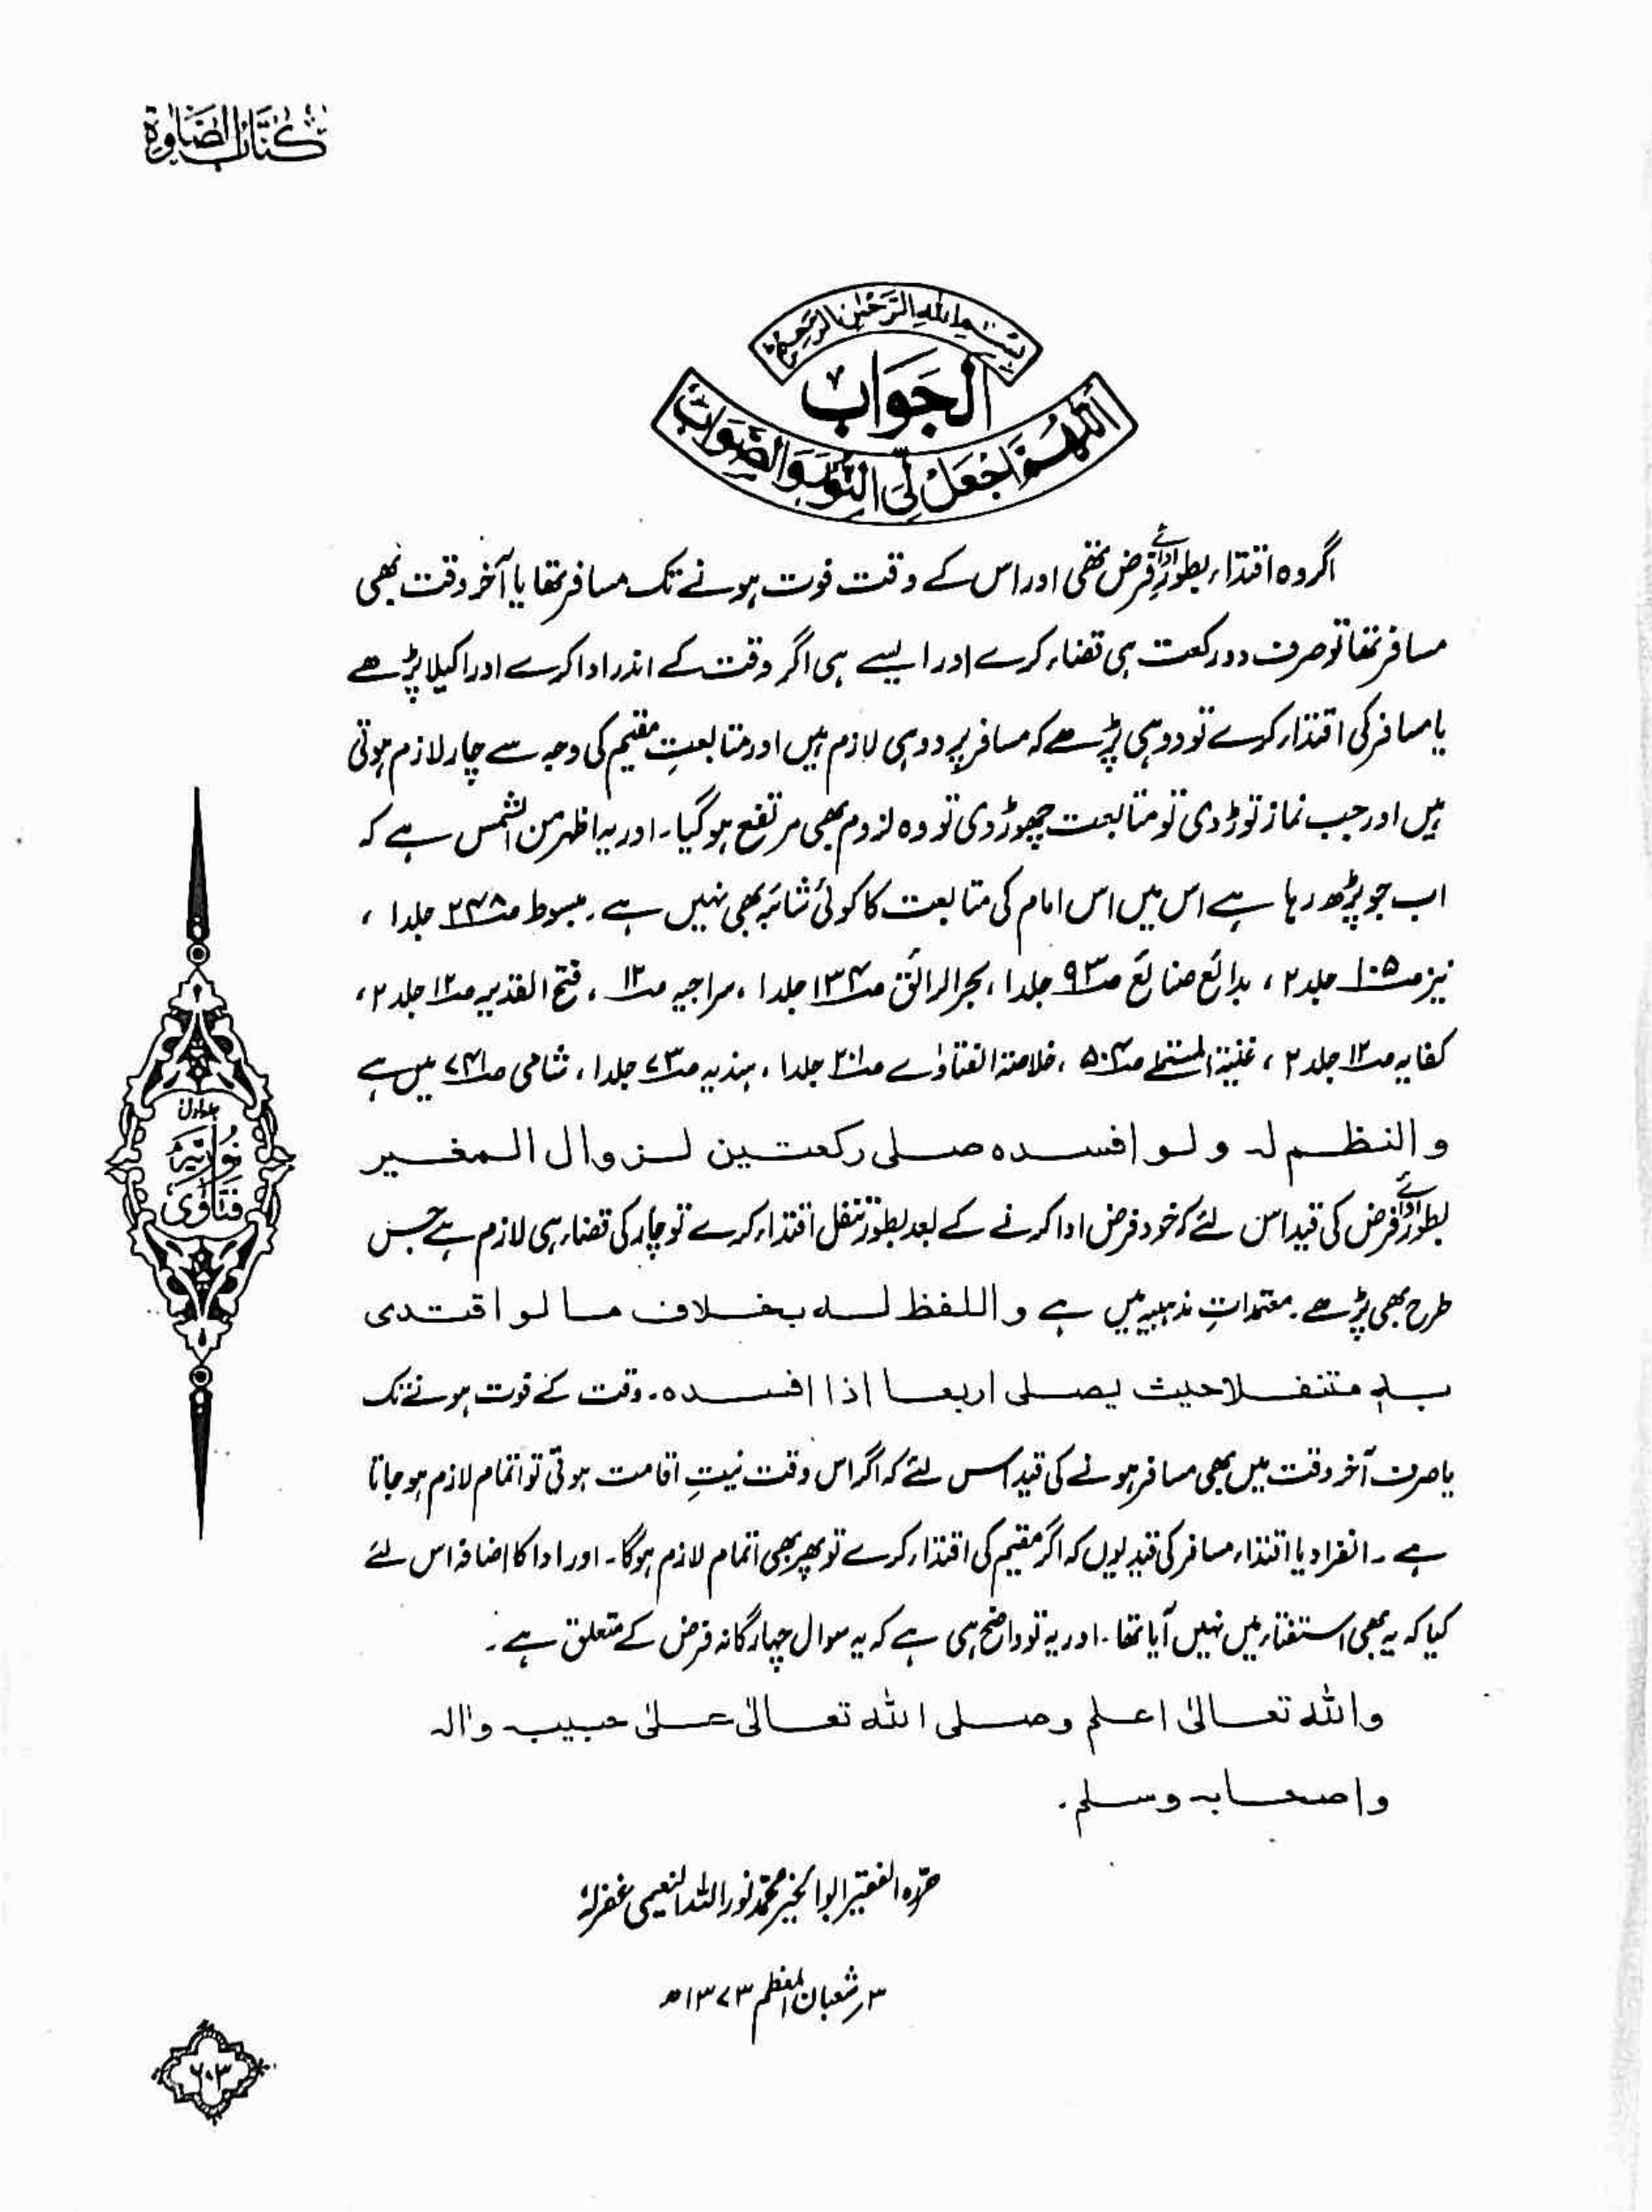 کتاب الصلوة
بسم الله الرحمن الرحيم
الجواب
اللهم اجعل لی النور والصواب
اگر وہ اقتداء بطور ادائے فرض تھی اور اس کے وقت فوت ہونے تک مسافر تھا یا آخر وقت بھی
مسافر تھا تو صرف دو رکعت ہی قضاء کرے اور ایسے ہی اگر وقت کے اندر ادا کرے اور اکیلا پڑھے
یا مسافر کی اقتداء کرے تو دو ہی پڑھے کہ مسافر پر دو ہی لازم ہیں اور متابعتِ مقیم کی وجہ سے چار لازم ہوتی
ہیں اور جب نماز توڑ دی تو متابعت چھوڑ دی تو وہ لزوم بھی مرتفع ہو گیا۔ اور یہ اظہر من الشمس ہے کہ
اب جو پڑھ رہا ہے اس میں اس امام کی متابعت کا کوئی شائبہ بھی نہیں ہے۔ مبسوط صـ۲۴۸ جلد۱ ،
نیز صـ۱۰۵ جلد۲ ، بدائع صنائع صـ۹۳ جلد۱ ، بحر الرائق صـ۱۳۴ جلد۱ ، سراجیہ صـ۱۲ ، فتح القدیر صـ۱۲ جلد۲ ،
کفایہ صـ۱۲ جلد۲ ، غنیۃ المستملے صـ۵۰۴ ، خلاصۃ الفتاوٰے صـ۲۰۱ جلد۱ ، ہندیہ صـ۷۳ جلد۱ ، شامی صـ۷۴۱ میں ہے
والنظم لہ ولو افسدہ صلی رکعتین لزوال المغیر
بطور ادائے فرض کی قید اس لئے کہ خود فرض ادا کرنے کے بعد بطور تنفل اقتداء کرے تو چار کی قضاء ہی لازم ہے جس
طرح بھی پڑھے۔ معتمداتِ مذہبیہ میں ہے واللفظ لہ بخلاف ما لو اقتدی
بہ متنفلا حیث یصلی اربعا اذا افسدہ۔ وقت کے فوت ہونے تک
یا صرف آخر وقت میں بھی مسافر ہونے کی قید اس لئے کہ اگر اس وقت نیتِ اقامت ہوتی تو اتمام لازم ہو جاتا
ہے۔ انفراد یا اقتداء مسافر کی قید یوں کہ اگر مقیم کی اقتداء کرے تو پھر بھی اتمام لازم ہوگا۔ اور ادا کا اضافہ اس لئے
کیا کہ یہ بھی استفتاء میں نہیں آیا تھا۔ اور یہ تو واضح ہی ہے کہ یہ سوال چہارگانہ فرض کے متعلق ہے۔
واللہ تعالیٰ اعلم وصلی اللہ تعالیٰ علیٰ حبیبہ واٰلہ
واصحابہ وسلم۔
حررہ الفقیر ابوالخیر محمد نور اللہ النعیمی غفرلہٗ
۳ر شعبان المعظم ۱۳۷۳ھ
جلد اول
نوریہ
فتاوی
۲۰۳